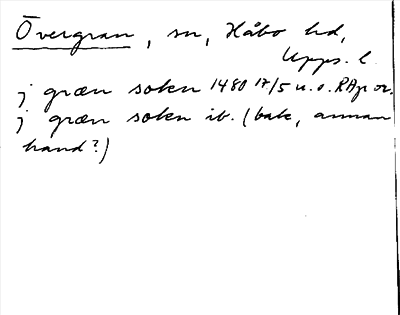 Övergran, sn, Håbo hd,
Upps. l.
j græn soken 1480 17/5 u. o. RAp or.
j græn soken ib. (bak, annan
hand?)